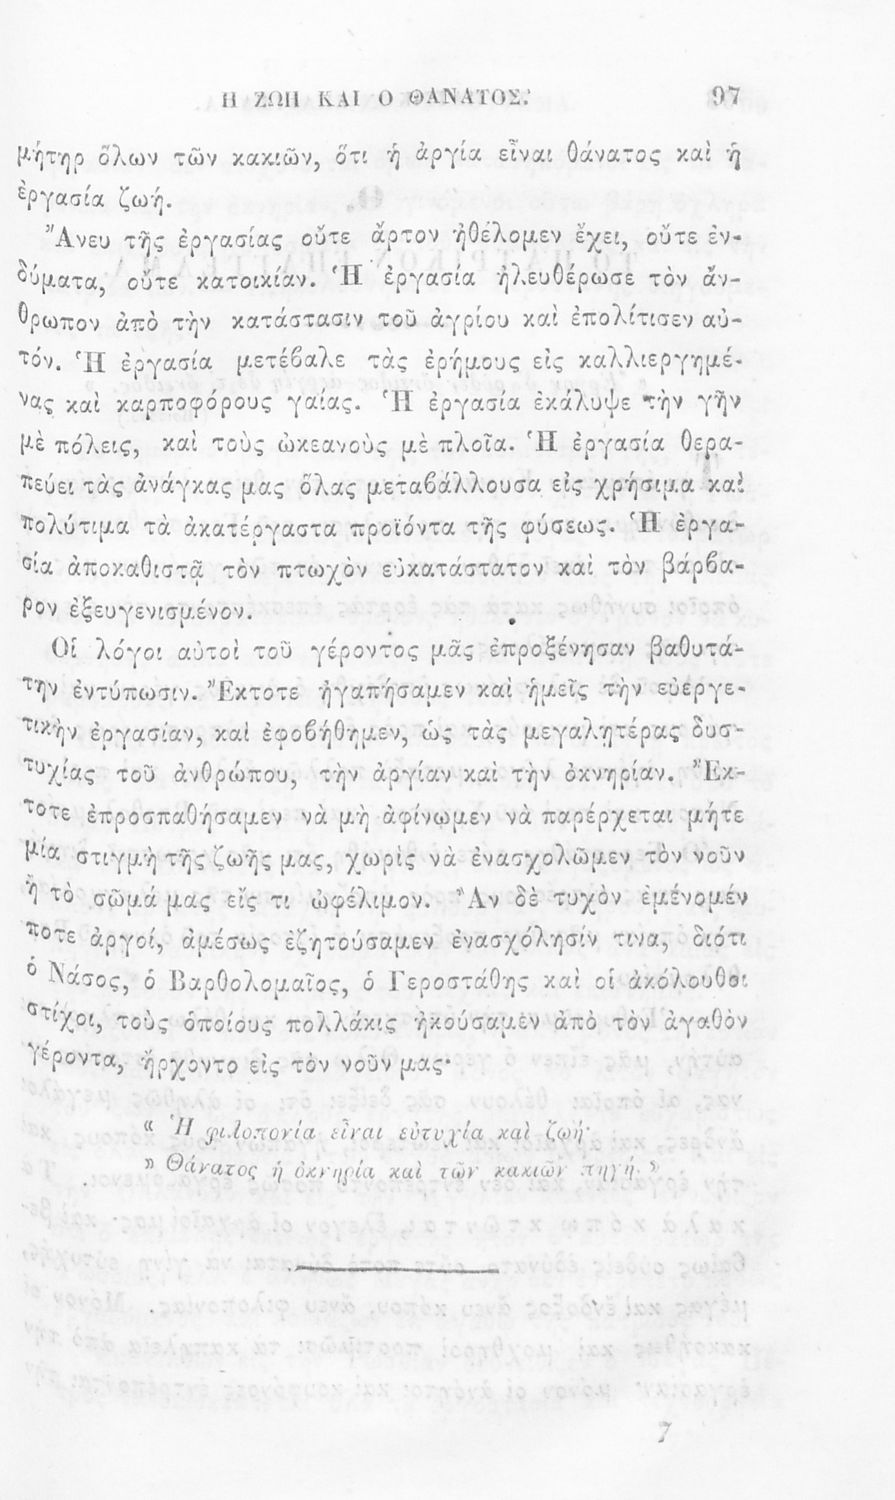 Η ΖΩΗ ΚΑΙ Ο ΘΑΝΑΤΟΣ. 97
μήτηρ ὅλων τῶν κακιῶν, ὅτι ἡ ἀργία εἶναι θάνατος καὶ ἡ
ἐργασία ζωή.
Ἄνευ τῆς ἐργασίας οὔτε ἄρτον ἠθέλομεν ἔχει, οὔτε ἐν-
δύματα, οὔτε κατοικίαν. Ἡ ἐργασία ἠλευθέρωσε τὸν ἄν-
θρωπον ἀπὸ τὴν κατάστασιν τοῦ ἀγρίου καὶ ἐπολίτισεν αὐ-
τόν. Ἡ ἐργασία μετέβαλε τὰς ἐρήμους εἰς καλλιεργημέ-
νας καὶ καρποφόρους γαίας. Ἡ ἐργασία ἐκάλυψε τὴν γῆν
μὲ πόλεις, καὶ τοὺς ὠκεανοὺς μὲ πλοῖα. Ἡ ἐργασία θερα-
πεύει τὰς ἀνάγκας μας ὅλας μεταβάλλουσα εἰς χρήσιμα καὶ
πολύτιμα τὰ ἀκατέργαστα προϊόντα τῆς φύσεως. Ἡ ἐργα-
σία ἀποκαθιστᾷ τὸν πτωχὸν εὐκατάστατον καὶ τὸν βάρβα-
ρον ἐξευγενισμένον.
Οἱ λόγοι αὐτοὶ τοῦ γέροντος μᾶς ἐπροξένησαν βαθυτά-
την ἐντύπωσιν. Ἔκτοτε ἠγαπήσαμεν καὶ ἡμεῖς τὴν εὐεργε-
τικὴν ἐργασίαν, καὶ ἐφοβήθημεν, ὡς τὰς μεγαλητέρας δυσ-
τυχίας τοῦ ἀνθρώπου, τὴν ἀργίαν καὶ τὴν ὀκνηρίαν. Ἔκ-
τοτε ἐπροσπαθήσαμεν νὰ μὴ ἀφίνωμεν νὰ παρέρχεται μήτε
μία στιγμὴ τῆς ζωῆς μας, χωρὶς νὰ ἐνασχολῶμεν τὸν νοῦν
ἢ τὸ σῶμά μας εἴς τι ὠφέλιμον. Ἂν δὲ τυχὸν ἐμένομέν
ποτε ἀργοί, ἀμέσως ἐζητούσαμεν ἐνασχόλησίν τινα, διότι
ὁ Νάσος, ὁ Βαρθολομαῖος, ὁ Γεροστάθης καὶ οἱ ἀκόλουθοι
στίχοι, τοὺς ὁποίους πολλάκις ἠκούσαμεν ἀπὸ τὸν ἀγαθὸν
γέροντα, ἤρχοντο εἰς τὸν νοῦν μας·
« Ἡ φιλοπονία εἶναι εὐτυχία καὶ ζωή·
» Θάνατος ἡ ὀκνηρία καὶ τῶν κακιῶν πηγή. »
7